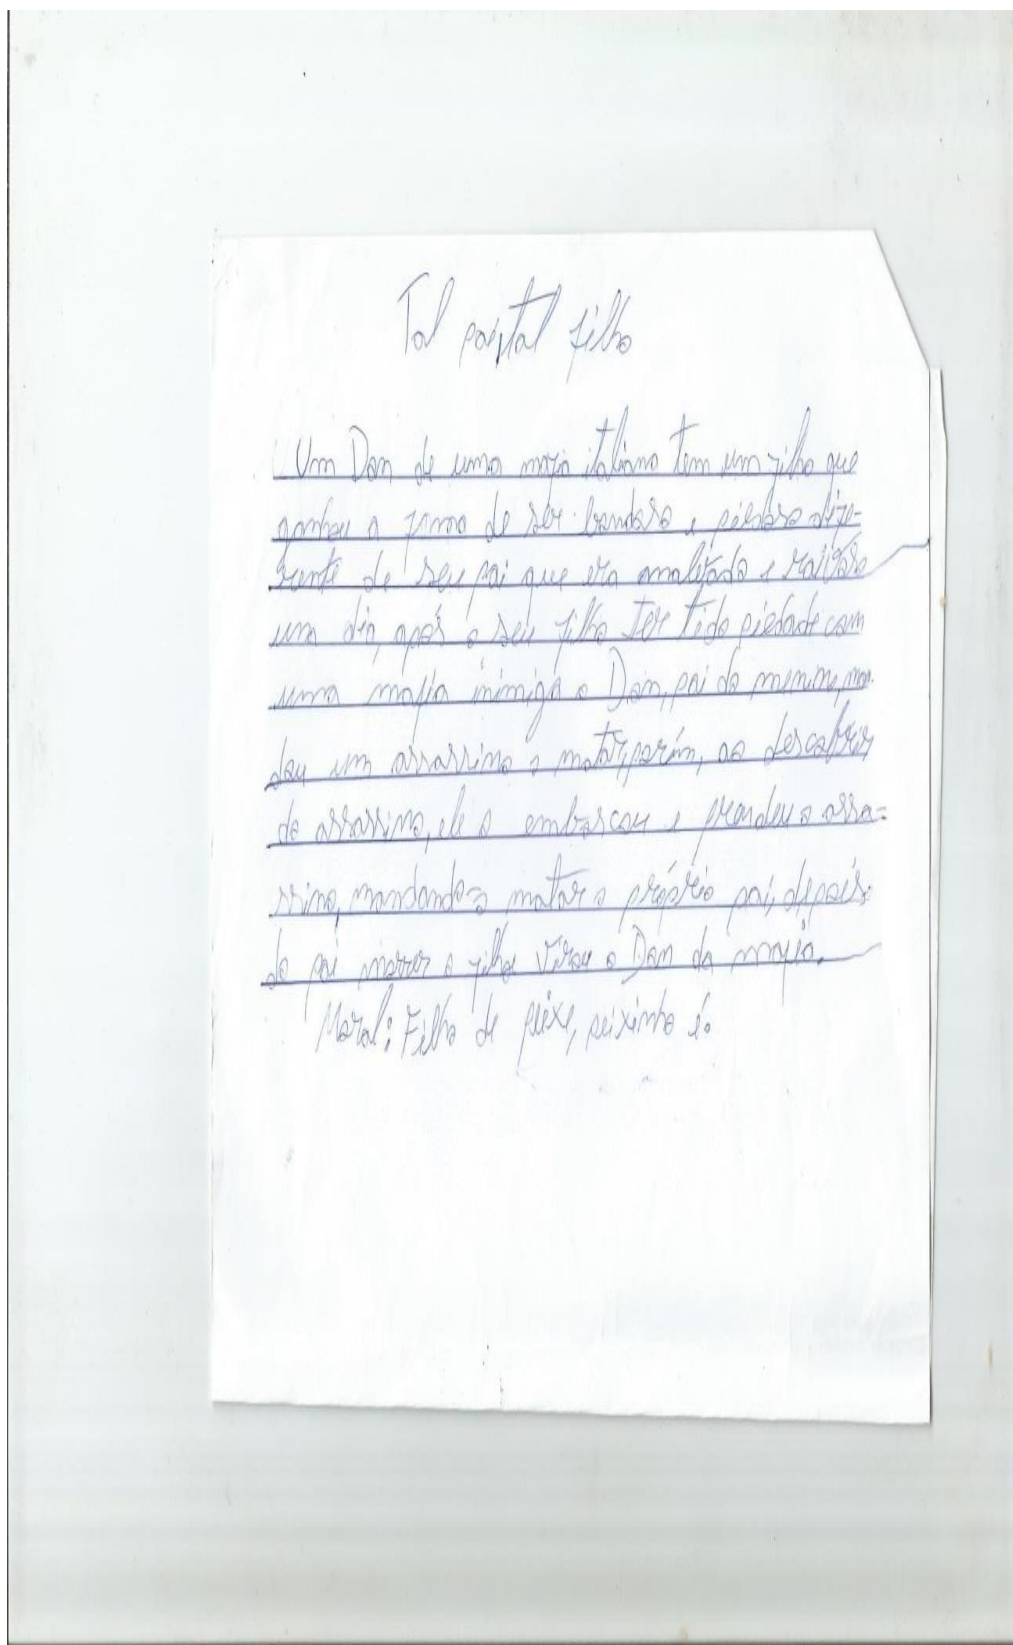 Tal pai, tal filho
Um Don de uma mafia italiana tem um filho que
ganhou a fama de ser bondoso e piedoso dife-
rente de seu pai que era malvado e raivoso
um dia, após o seu filho ter tido piedade com
uma máfia inimiga o Don, pai do menino, man-
dou um assassino o matar, porém, ao descobrir
do assassino, ele o emboscou e prendeu o assa-
ssino, mandando-o matar o próprio pai, depois
do pai morrer o filho virou o Don da mafia.
Moral: Filho de peixe, peixinho é.